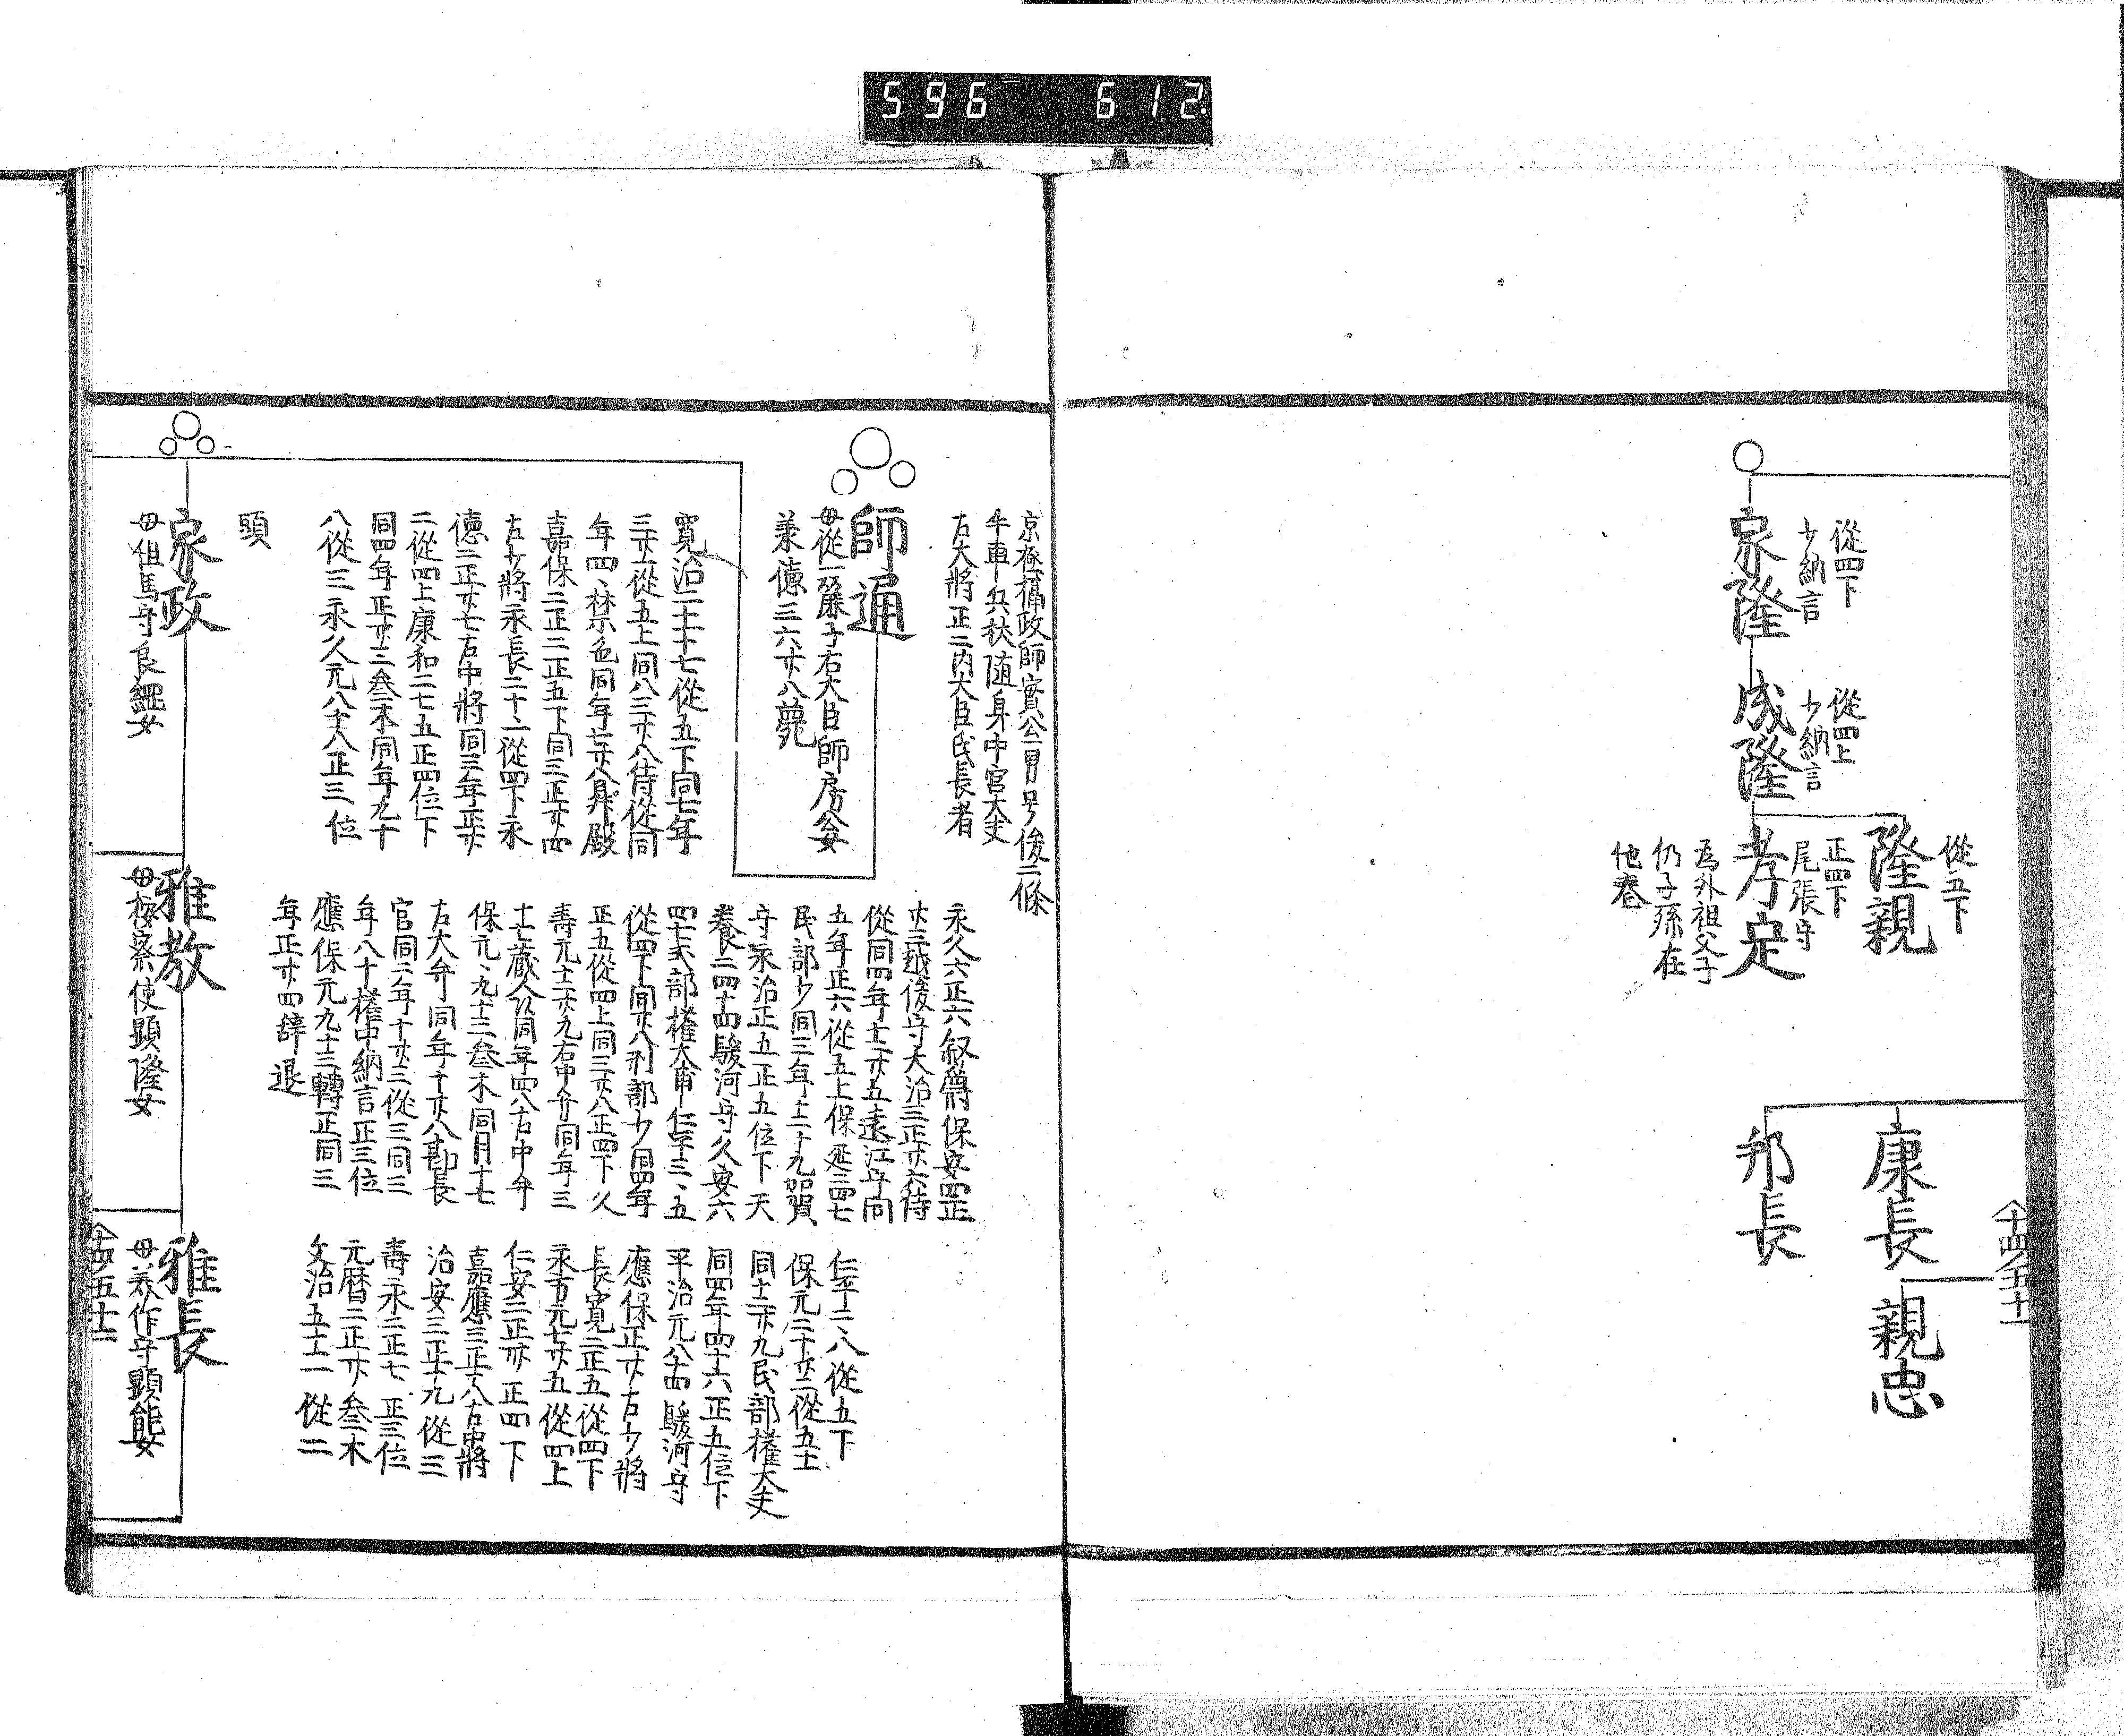 596 612
從四下
少納言
家隆
從四上
少納言
成隆
從五下
隆親
正四下
尾張守
孝定
為外祖父子
仍子孫在
他巻
康長
親忠
邦長
十四ノ五十一
京極攝政師實公一男号後二條
牛車兵杖随身中宮大夫
左大將正二内大臣氏長者
師通
母從一麗子右大臣師房公女
承德三六廿八薨
寛治二十二十七從五下同七年
三廿一從五上同八三廿八侍從同
年四、禁色同年七廿八昇殿
嘉保二正二正五下同三正廿四
右少將永長二十二從四下永
德二正廿七右中將同三年正廿
二從四上康和二七五正四位下
同四年正廿三叅木同年九十
八從三永久元八十八正三位
頭
家政
母但馬守良繩女
永久六正六叙爵保安四正
廿三越後守大治三正廿六侍
從同四年十二廿五遠江守同
五年正六從五上保延三四七
民部少同三年十二十九加賀
守永治正五正五位下天
養二四十四駿河守久安六
四七式部權大甫仁平三、五
從四下同廿八刑部少同四年
正五從四上同三廿八正四下久
壽元十二廿九右中弁同年三
十七蔵人同年四八右中弁
保元、九十三叅木同月十七
右大弁同年十廿八勘長
官同二年十廿三從三同三
年八十權中納言正三位
應保元九十三轉正同三
年正廿四辞退
雅教
母按察使顕隆女
仁平二八從五下
保元二十廿二從五上
同十二廿九民部權大夫
同四年四十六正五位下
平治元八十四駿河守
應保正廿右少將
長寛二正五從四下
永万元七廿五從四上
仁安二正廿正四下
嘉應三正十八右中將
治安三正十九從三
壽永二正七正三位
元暦二正廿叅木
文治五十一從二
雅長
母美作守顕能女
十四ノ五十二